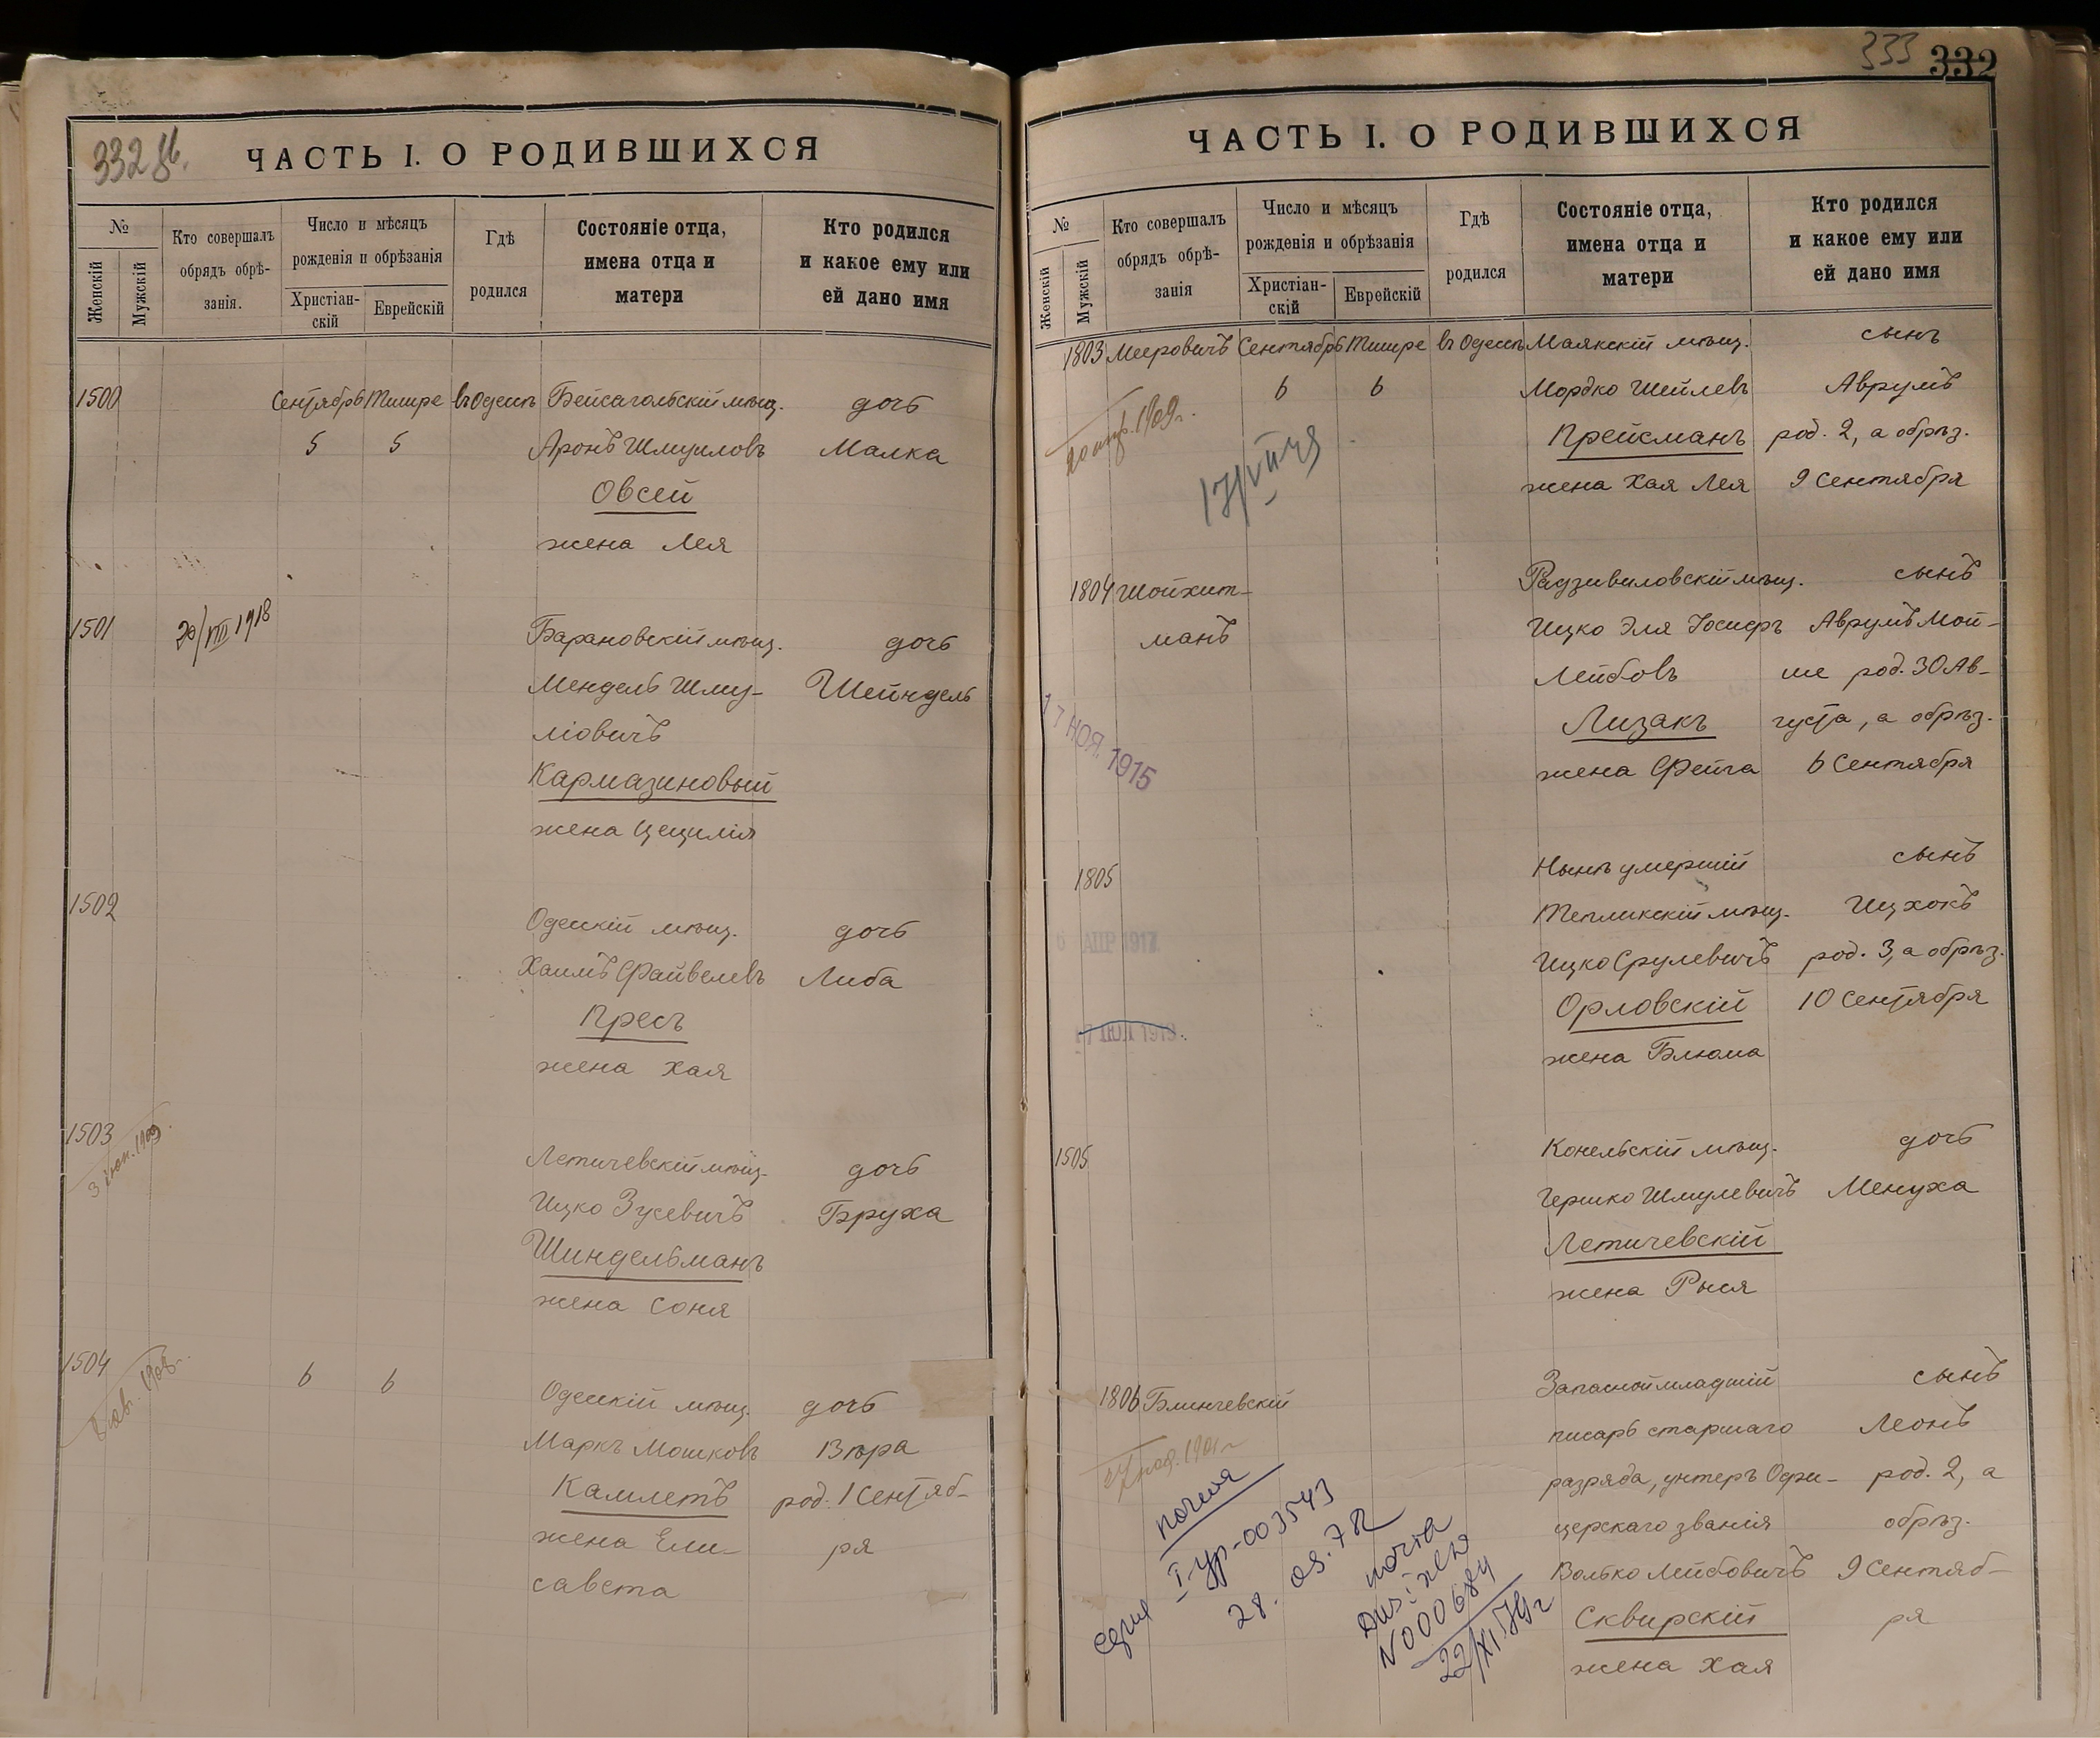 332 об.
ЧАСТЬ I. О РОДИВШИХСЯ
№
Женскій
Мужскій
Кто совершалъ
обрядъ обрѣ-
занія.
Число и мѣсяцъ
рожденія и обрѣзанія
Христіан-
скій
Еврейскій
Гдѣ
родился
Состояніе отца,
имена отца и
матери
Кто родился
и какое ему или
ей дано имя
1500 Сентябрь Тишре въ Одессѣ Бейсагольскій мѣщ. дочь
5 5 Аронъ Шмуиловъ Малка
Овсей
жена Лея
1501 20/VIII 1918 Барановскій мѣщ. дочь
Мендель Шму- Шейндель
ліовичъ
Кармазиновый
жена Цецилія
1502 Одесскій мѣщ. дочь
Хаимъ Файвелевъ Либа
Пресъ
жена Хая
1503 Летичевскій мѣщ. дочь
Ицко Зусевичъ Бруха
Шиндельманъ
жена Соня
1504 6 6 Одесскій мѣщ. дочь
Маркъ Мошковъ Вѣра
Камлетъ род. 1 Сентяб-
жена Ели- ря
савета
333 332
ЧАСТЬ I. О РОДИВШИХСЯ
№
Женскій
Мужскій
Кто совершалъ
обрядъ обрѣ-
занія
Число и мѣсяцъ
рожденія и обрѣзанія
Христіан-
скій
Еврейскій
Гдѣ
родился
Состояніе отца,
имена отца и
матери
Кто родился
и какое ему или
ей дано имя
1803 Мееровичъ Сентябрь Тишре въ Одессѣ Маякскій мѣщ. сынъ
6 6 Мордко Шейлевъ Аврумъ
Прейсманъ род. 2, а обрѣз.
жена Хая Лея 9 Сентября
1804 Шойхет- Радзивиловскій мѣщ. сынъ
манъ Ицко Эля Іосифъ Аврумъ Мой-
Лейбовъ ше род. 30 Ав-
17 НОЯ. 1915 Лизакъ густа, а обрѣз.
жена Фейга 6 Сентября
1805 Нынѣ умершій сынъ
Тепликскій мѣщ. Ицхокъ
6 АПР 1917 Ицко Срулевичъ род. 3, а обрѣз.
Орловскій 10 Сентября
жена Блюма
1505 Конельскій мѣщ. дочь
Гершко Шмулевичъ Менуха
Летичевскій
жена Рыся
1806 Блинчевскій Запасной младшій сынъ
писарь старшаго Леонъ
разряда, унтеръ Офи- род. 2, а
церскаго званія обрѣз.
Волько Лейбовичъ 9 Сентяб-
Сквирскій ря
жена Хая
серия I-ур-003543
N 000684